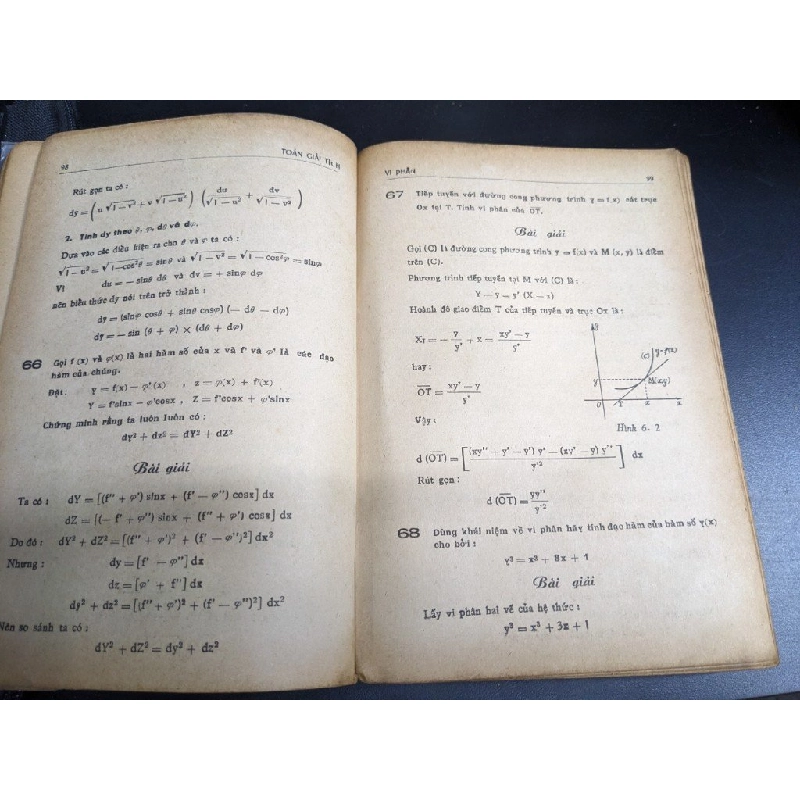 98 TOÁN GIẢI TÍCH
Rút gọn ta có :
dy = ( u √1 − v² + v √1 − u² ) ( du/√1 − u² + dv/√1 − v² )
2. Tính dy theo θ, φ, dθ và dφ.
Dựa vào các điều hiện ra cho θ và φ ta có :
√1 − v² = √1 − cos²φ = sinφ
Vì du = − sinθ dθ và dv = + sinφ dφ
nên biểu thức dy nói trên trở thành :
dy = (sinφ cosθ + sinθ cosφ) (− dθ − dφ)
dy = − sin (θ + φ) × (dθ + dφ)
66 Gọi f (x) và φ(x) là hai hàm số của x và f' và φ' là các đạo
hàm của chúng.
Đặt : y = f(x) − φ'(x) , z = φ(x) + f'(x)
Y = f'sinx − φ'cosx , Z = f'cosx + φ'sinx
Chứng minh rằng ta luôn luôn có :
dy² + dz² = dY² + dZ²
Bài giải
Ta có : dY = [(f'' + φ') sinx + (f' − φ'') cosx] dx
dZ = [(− f' + φ'') sinx + (f'' + φ') cosx] dx
Do đó : dY² + dZ² = [(f'' + φ')² + (f' − φ'')²] dx²
Nhưng : dy = [f' − φ''] dx
dz = [φ' + f''] dx
dy² + dz² = [(f'' + φ')² + (f' − φ'')²] dx²
Nên so sánh ta có :
dY² + dZ² = dy² + dz²
VI PHÂN 99
67 Tiếp tuyến với đường cong phương trình y = f(x) cắt trục
Ox tại T. Tính vi phân của OT.
Bài giải
Gọi (C) là đường cong phương trình y = f(x) và M (x, y) là điểm
trên (C).
Phương trình tiếp tuyến tại M với (C) là :
Y − y = y' (X − x)
Hoành độ giao điểm T của tiếp tuyến và trục Ox là :
X_T = − y/y' + x = xy' − y/y'
hay :
OT = xy' − y/y'
Vậy :
y
(C) y=f(x)
y M(x,y)
O T x x
Hình 6. 2
d (OT) = [ (xy'' + y' − y') y' − (xy' − y) y''/y'² ] dx
Rút gọn :
d (OT) = yy''/y'²
68 Dùng khái niệm về vi phân hãy tính đạo hàm của hàm số y(x)
cho bởi :
y³ = x³ + 3x + 1
Bài giải
Lấy vi phân hai vế của hệ thức :
y³ = x³ + 3x + 1